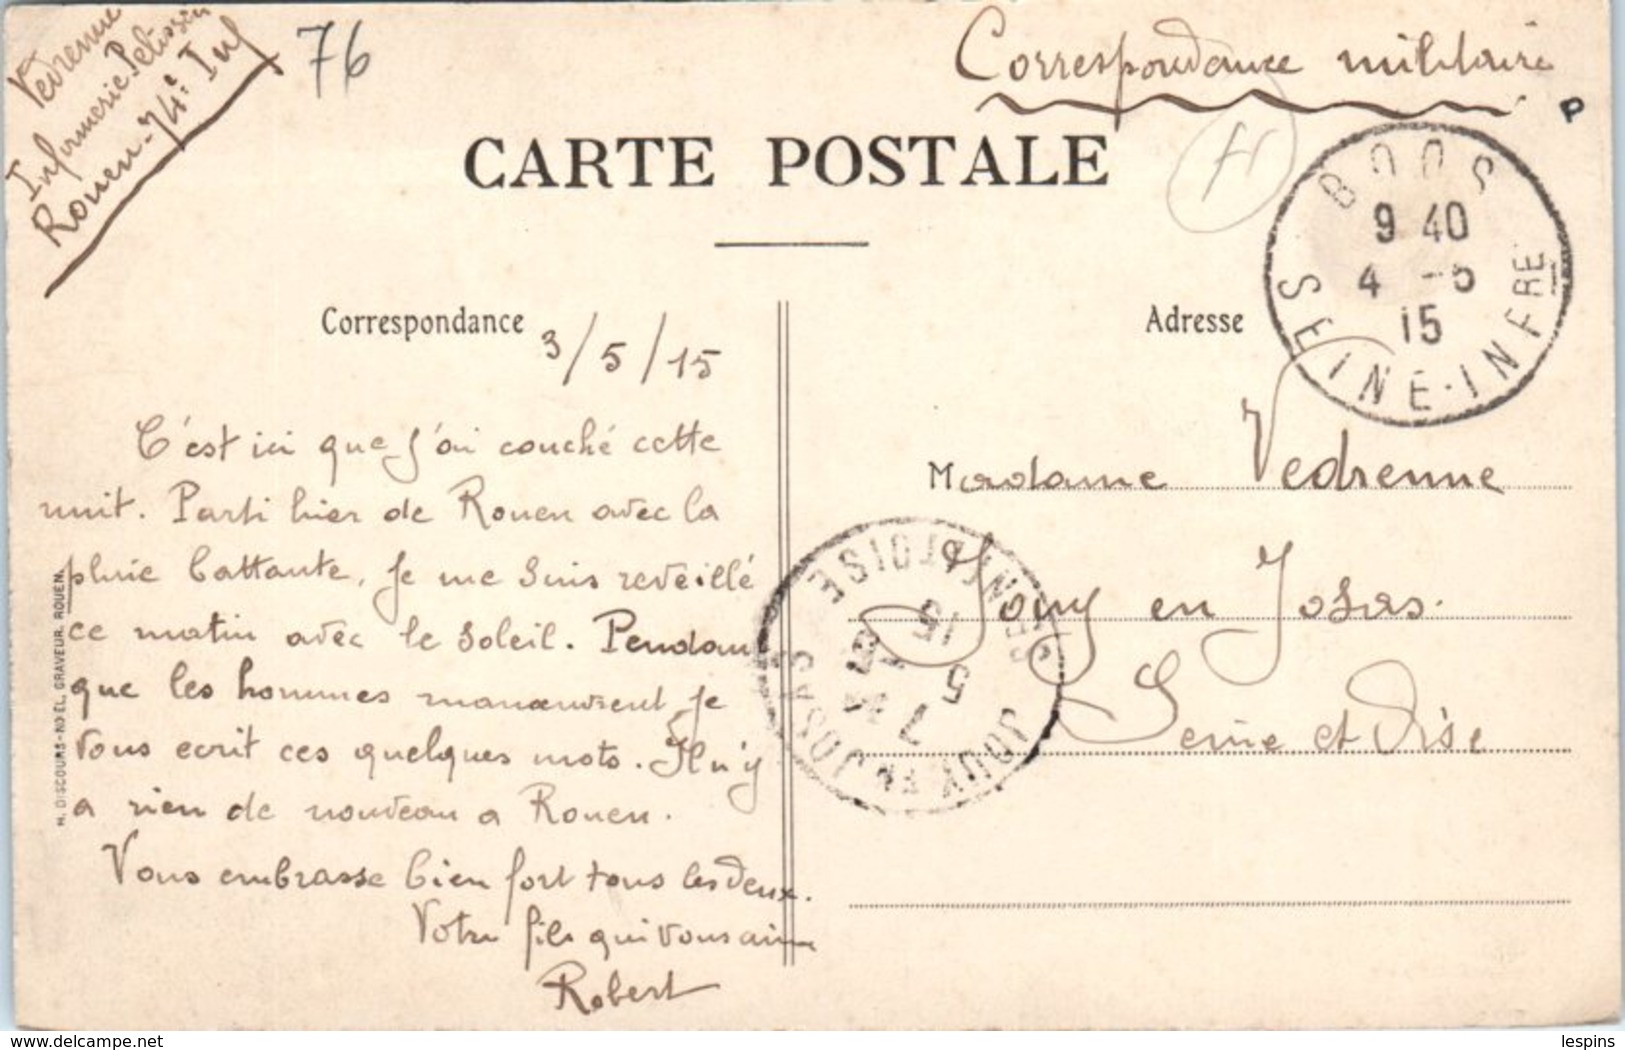 Vedrenne
Infirmerie Pelissier
Rouen - 74e Inf
76
Correspondance militaire
P
CARTE POSTALE
BOOS
9 40
4 -5
15
SEINE-INFRE
Correspondance
3/5/15
Adresse
C'est ici que j'ai couché cette
nuit. Parti hier de Rouen avec la
pluie battante, je me suis reveillé
ce matin avec le soleil. Pendant
que les hommes manœuvrent je
vous ecrit ces quelques mots. Il n'y
a rien de nouveau a Rouen.
Vous embrasse bien fort tous les deux.
Votre fils qui vous aime
Robert
Madame Vedrenne
Jouy en Josas.
Seine et Oise
JOUY EN JOSAS
SEINE ET OISE
7
5
15
H. DISCOURS-NOËL, GRAVEUR. ROUEN.
lespins